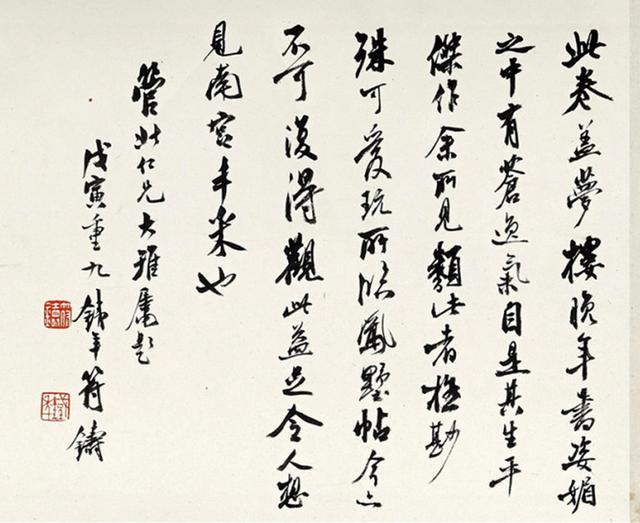 此卷盖夢樓晚年書姿媚
之中有蒼逸氣自是其生平
傑作余所見類此者極尠
殊可愛玩所臨鳳墅帖今亦
不可復得觀此益足令人想
見南宮丰采也
管北仁兄大雅屬題
戊寅重九鐵年符鑄